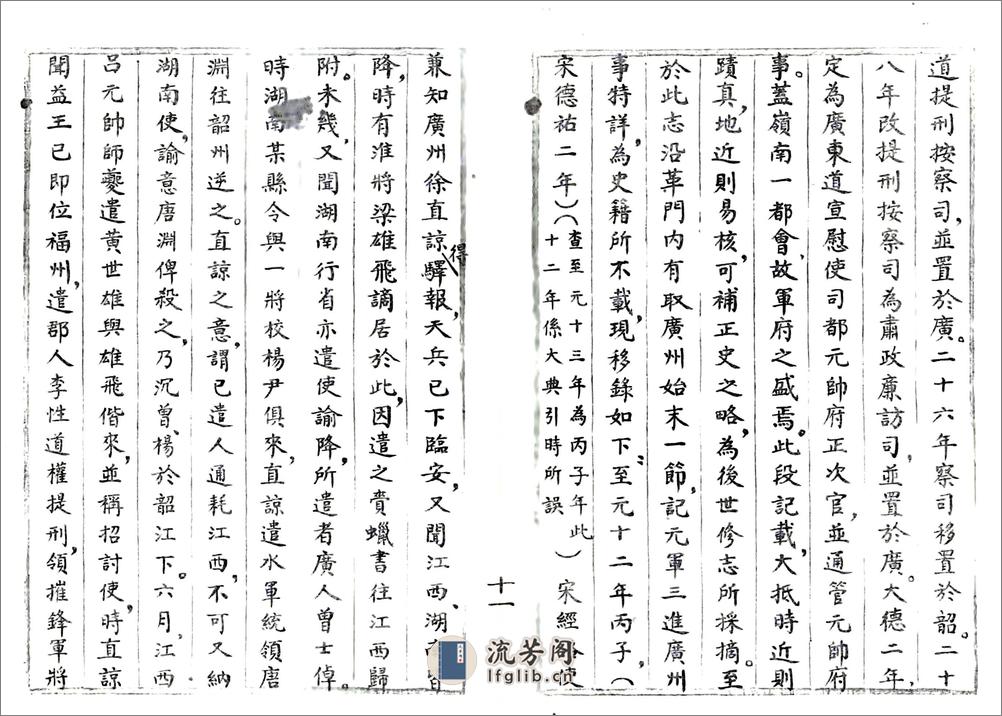 道提刑按察司，並置於廣。二十六年察司移置於韶。二十
八年改提刑按察司為肅政廉訪司，並置於廣。大德二年，
定為廣東道宣慰使司都元帥府正次官，並通管元帥府
事。蓋嶺南一都會，故軍府之盛焉。此段記載，大抵時近則
蹟真，地近則易核，可補正史之略，為後世修志所採摘。至
於此志沿革門內有取廣州始末一節，記元軍三進廣州
事特詳，為史籍所不載，現移錄如下：至元十二年丙子，（
宋德祐二年）（查至元十三年為丙子年此
十二年係大典引時所誤）宋經
使
兼知廣州徐直諒得驛報，天兵已下臨安，又聞江西、湖
降，時有淮將梁雄飛謫居於此，因遣之賫蠟書往江西歸
附。未幾，又聞湖南行省亦遣使諭降，所遣者廣人曾士倬。
時湖南某縣令與一將校楊尹俱來，直諒遣水軍統領唐
淵往韶州逆之。直諒之意，謂已遣人通耗江西，不可又納
湖南使，諭意唐淵俾殺之，乃沉曾、楊於韶江下。六月，江西
呂元帥師夔遣黃世雄與雄飛偕來，並稱招討使，時直諒
聞益王已即位福州，遣郡人李性道權提刑，領摧鋒軍將
十一
流芳阁
lfglib.cn